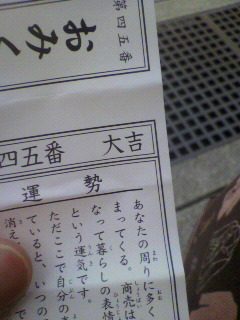 第四五番
おみく
四五番 大吉
運勢
あなたの周りに多く
まってくる。商売は
なって暮らしの表情
という運気です。
ただここで自分の
ていると、いつの
消え